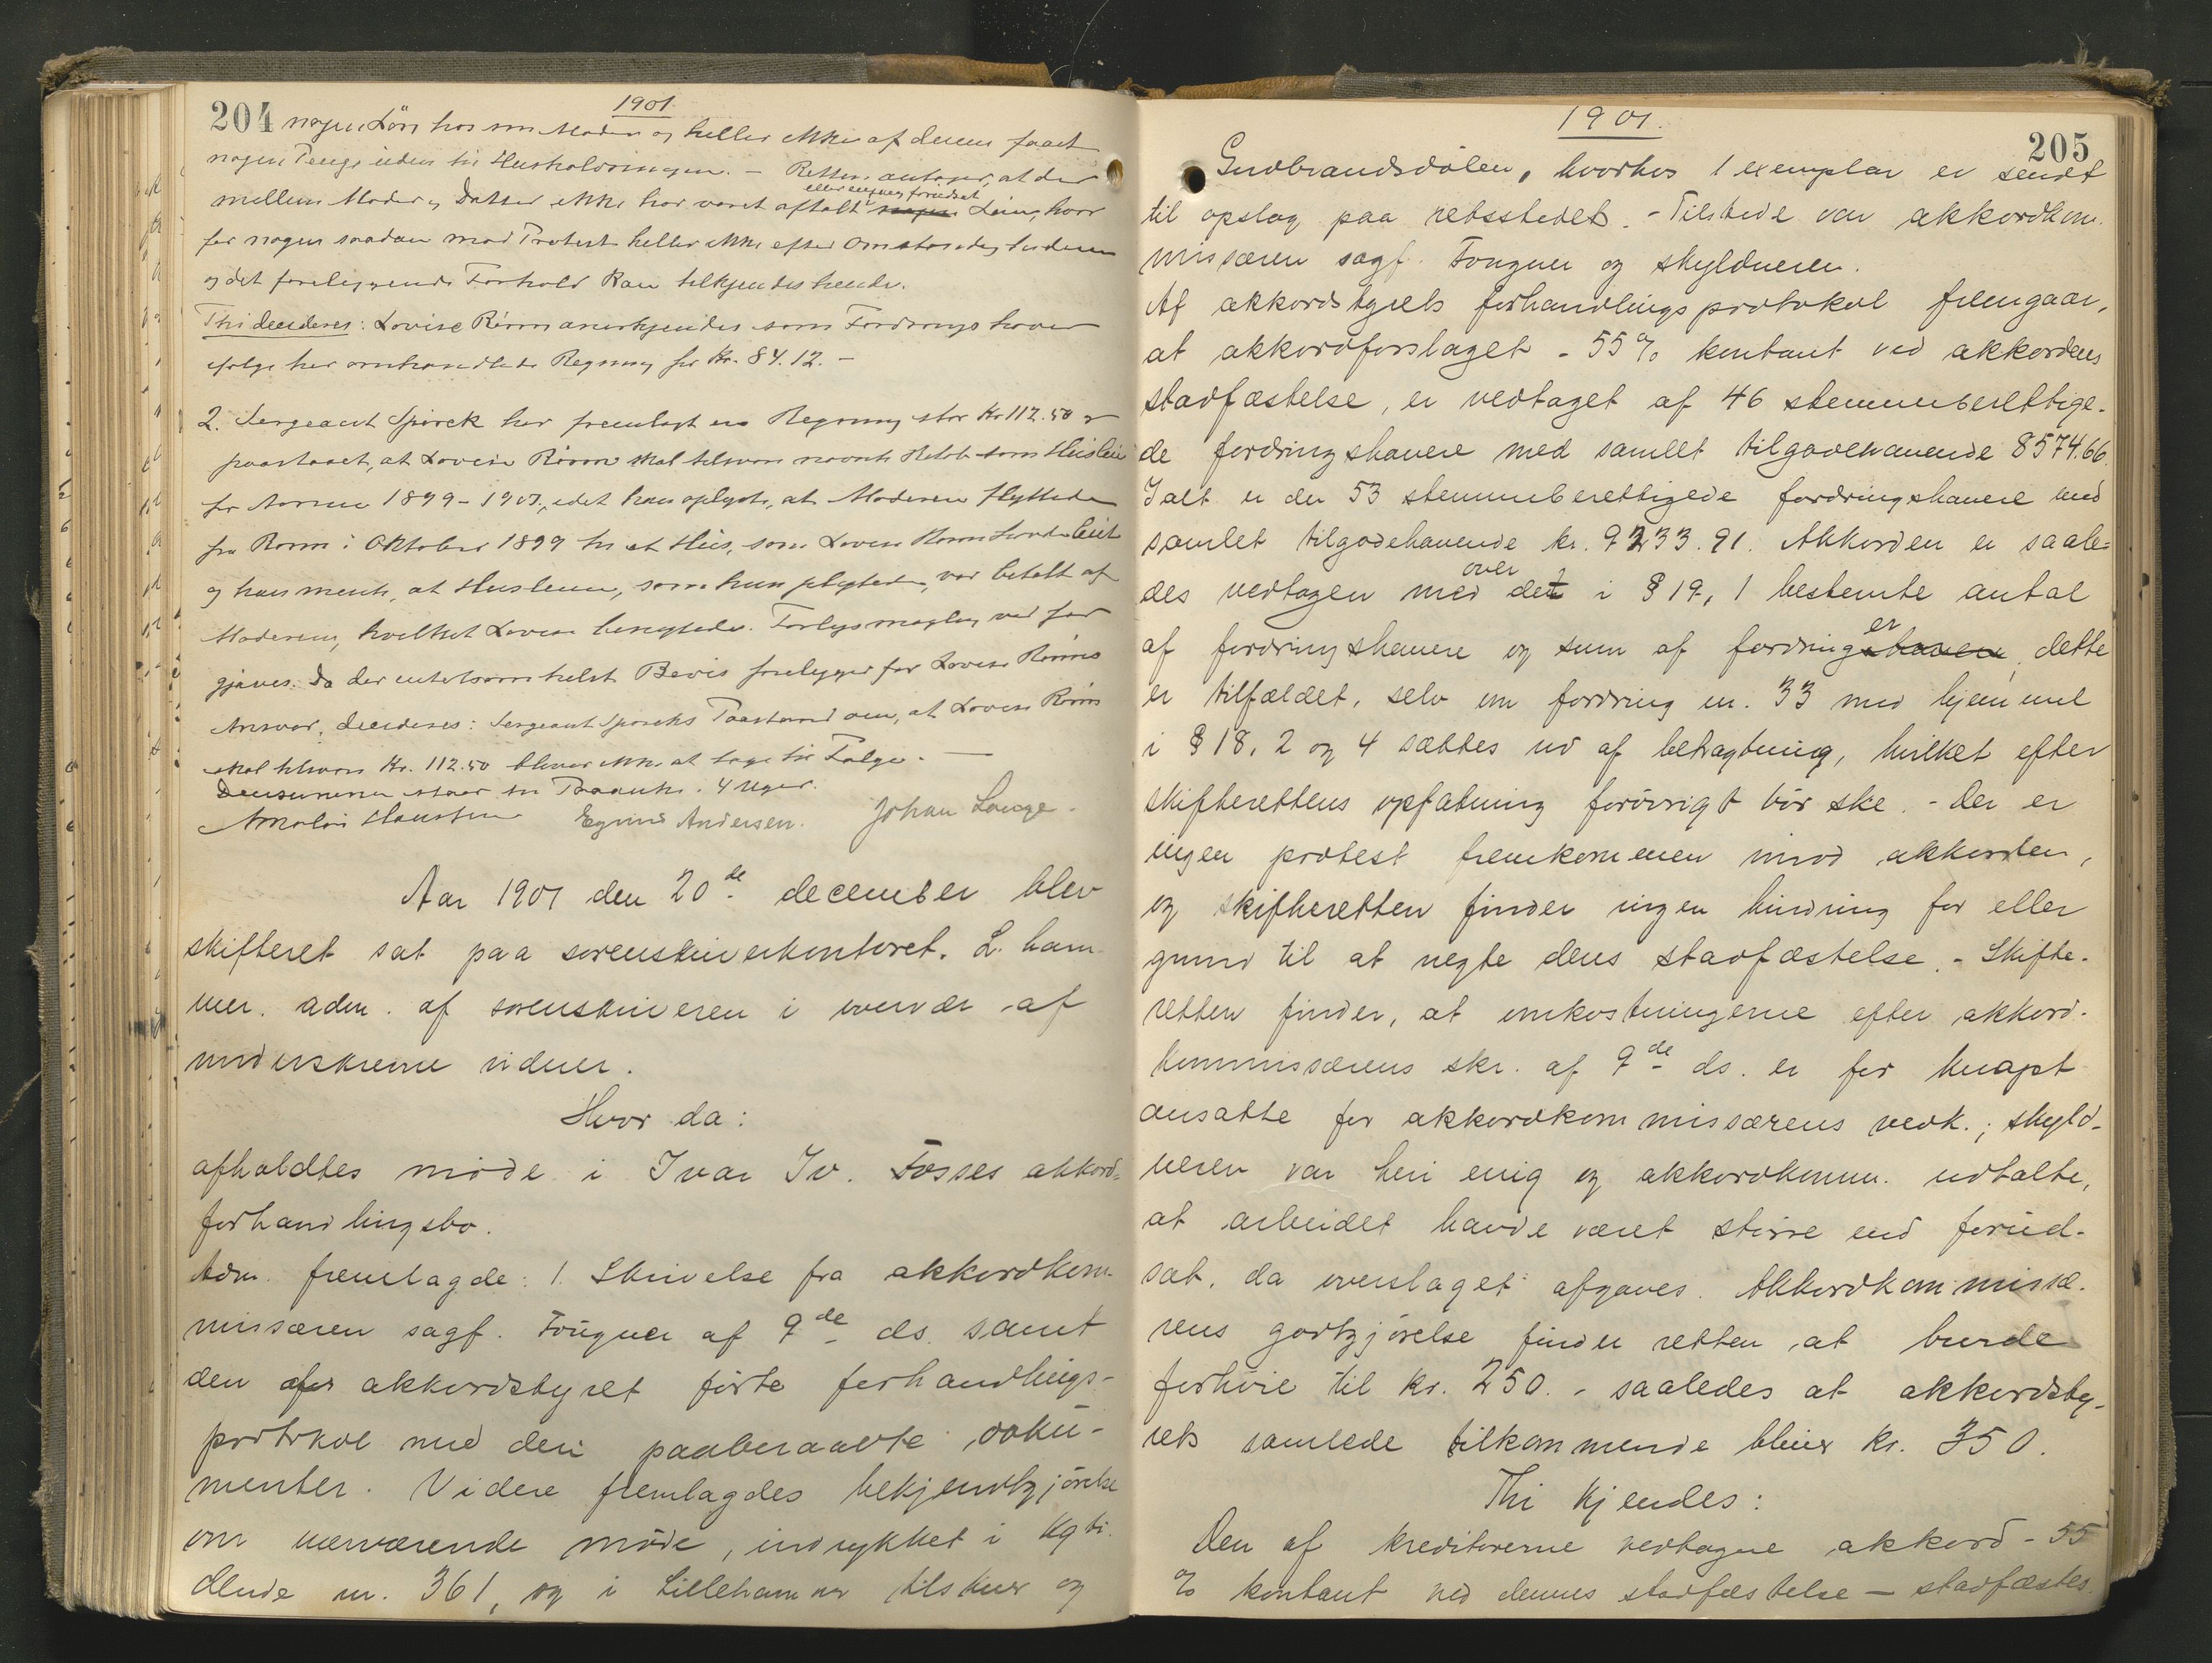 1901.
204 nogen Løn hos sin Moder og heller ikke af denne faaet
nogen Penge uden til Husholdningen. – Retten antager, at der
eller sig nøg forudsat
mellem Moder og Datter ikke har været aftalt nogen Løn, hvor
for nogen saadan mod Protest heller ikke efter Omstændighederne
og det foreliggende Forhold kan tilkjendes hende.
Thi decideres: Lovise Rönn anerkjendes som Fordringshaver
ifølge her omhandlede Regning for Kr. 84.12. –
2. Sergeant Spörck har fremlagt en Regning stor Kr 112.50 og
paastaaet, at Lovise Rönn skal tilsvare nævnte Beløb som Husleie
for Aarene 1899-1901, idet han oplyste, at Moderen flyttede
fra Rönn i Oktober 1899 til et Hus, som Lovise Rönn havde leiet
og han mente, at Husleien, som hun pligtede, var betalt af
Moderen, hvilket Lovise benegtede. Forligsmægling ved for
gjæves. Da der intetsomhelst Bevis foreligger for Lovise Rönns
Ansvar, decideres: Sergeant Spörcks Paastand om, at Lovise Rönn
skal tilsvare Kr. 112.50 bliver ikke at tage til Følge. –
Decisionerne staar til Paaanke i 4 Uger.
Amalie Hansten Egvind Andersen. Johan Lange.
Aar 1901 den 20de december blev
skifteret sat paa sorenskriverkontoret. L. ham
mer. adm. af sorenskriveren i overvær af
underskrevne vidner.
Hvor da:
afholdtes møde i Ivar Iv. Fosses akkord-
forhandlingsbo.
Adm. fremlagde: 1. Skrivelse fra akkordkom-
missæren sagf. Fougner af 9de ds. samt
den af akkordstyret førte forhandlings-
protokol med deri paaberaabte doku-
menter. Videre fremlagdes bekjendtgjørelse
om nærværende møde, indrykket i Kgti.
dende nr. 361, og i Lillehammer tilskuer og
1901.
205
Gudbrandsdölen, hvorhos 1 exemplar er sendt
til opslag paa retsstedet. – Tilstede var akkordkom.
missæren sagf. Fougner og skyldneren.
Af akkordstyrets forhandlingsprotokol fremgaar,
at akkordforslaget – 55 % kontant ved akkordens
stadfæstelse, er vedtaget af 46 stemmeberettige-
de fordringshavere med samlet tilgodehavende 8574.66.
Ialt er der 53 stemmeberettigede fordringshavere med
samlet tilgodehavende kr. 9233.91. Akkorden er saale-
over
des vedtagen med det i § 19, 1 bestemte antal
er
af fordringshavere og sum af fordringshavere, dette
er tilfældet, selv om fordring nr. 33 med hjemmel
i § 18, 2 og 4 sættes ud af betragtning, hvilket efter
skifterettens opfatning forøvrigt bør ske. – Der er
ingen protest fremkommen mod akkorden,
og skifteretten finder ingen hindring for eller
grund til at negte dens stadfæstelse. – Skifte-
retten finder, at omkostningerne efter akkord-
kommissærens skr. af 9de ds. er for knapt
ansatte for akkordkommissærens vedk.; skyld-
neren var heri enig og akkordkomm. udtalte,
at arbeidet havde været større end forud-
sat, da overslaget afgaves. Akkordkommissæ-
rens godtgjørelse finder retten at burde
forhøie til kr. 250. – saaledes at akkordsty-
rets samlede tilkommende bliver kr. 350.
Thi kjendes:
Den af kreditorerne vedtagne akkord – 55
% kontant ved dennes stadfæstelse – stadfæstes.